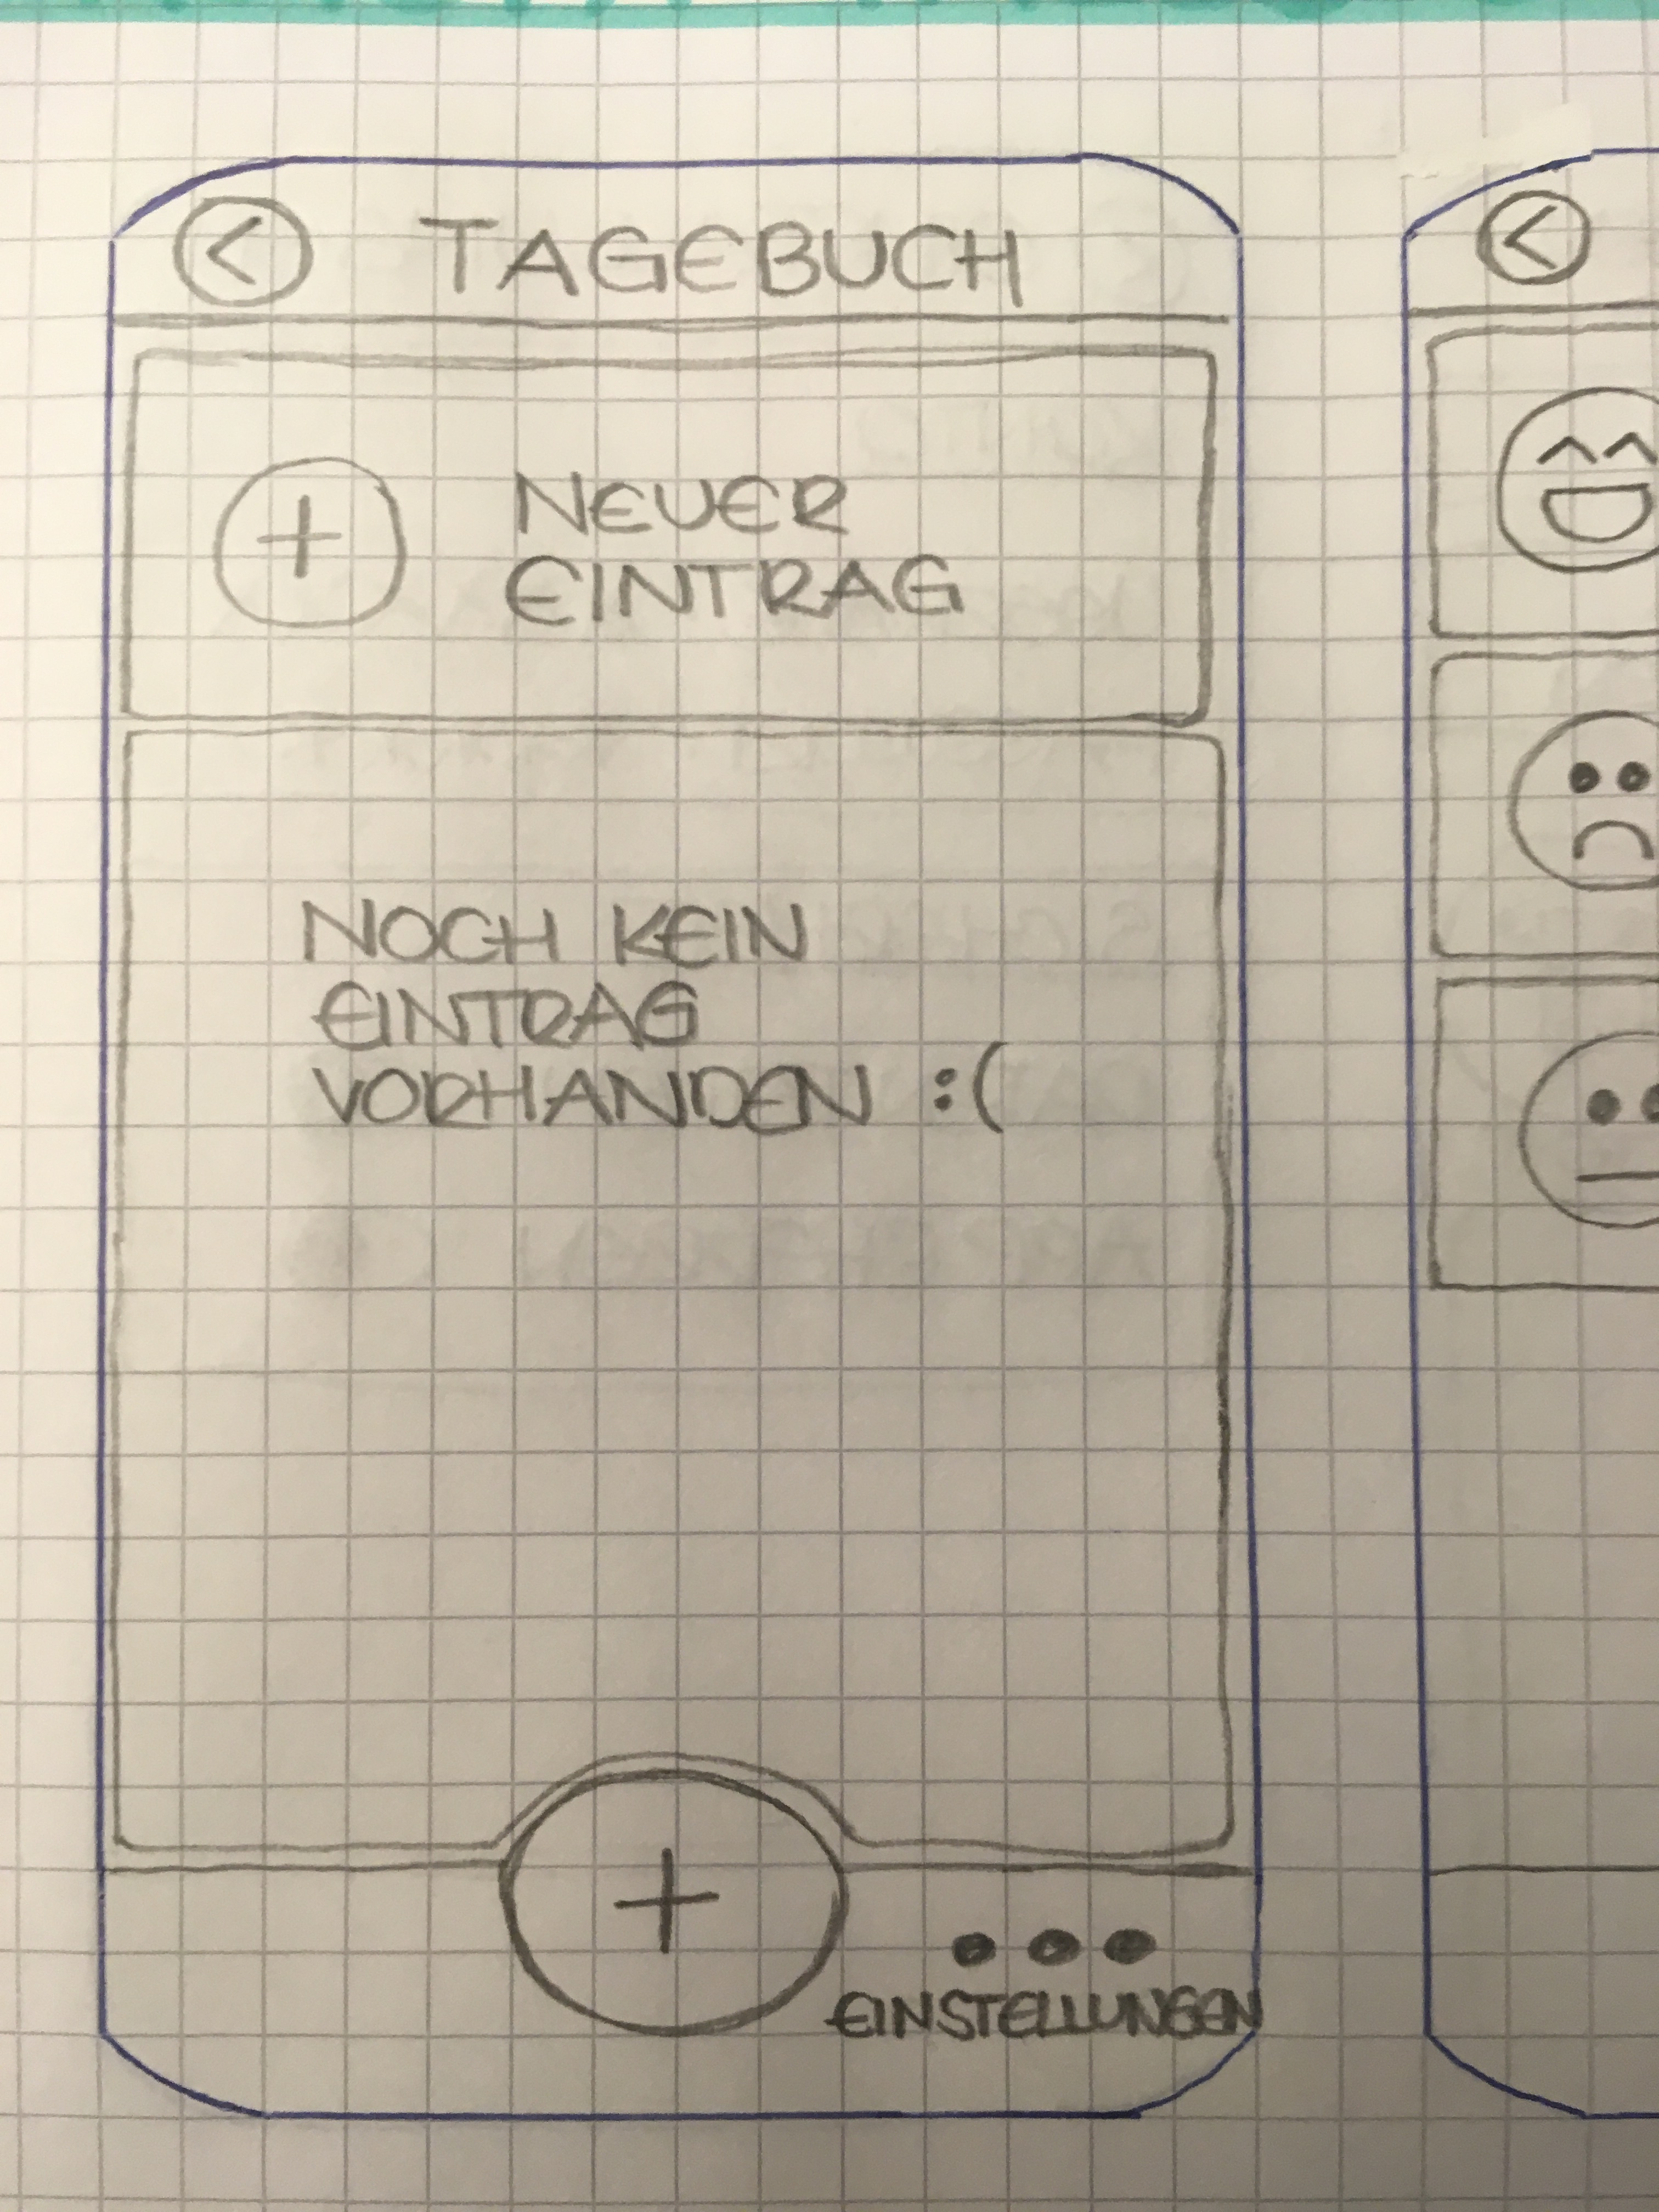 < TAGEBUCH
+ NEUER
EINTRAG
NOCH KEIN
EINTRAG
VORHANDEN :(
+
EINSTELLUNGEN
<